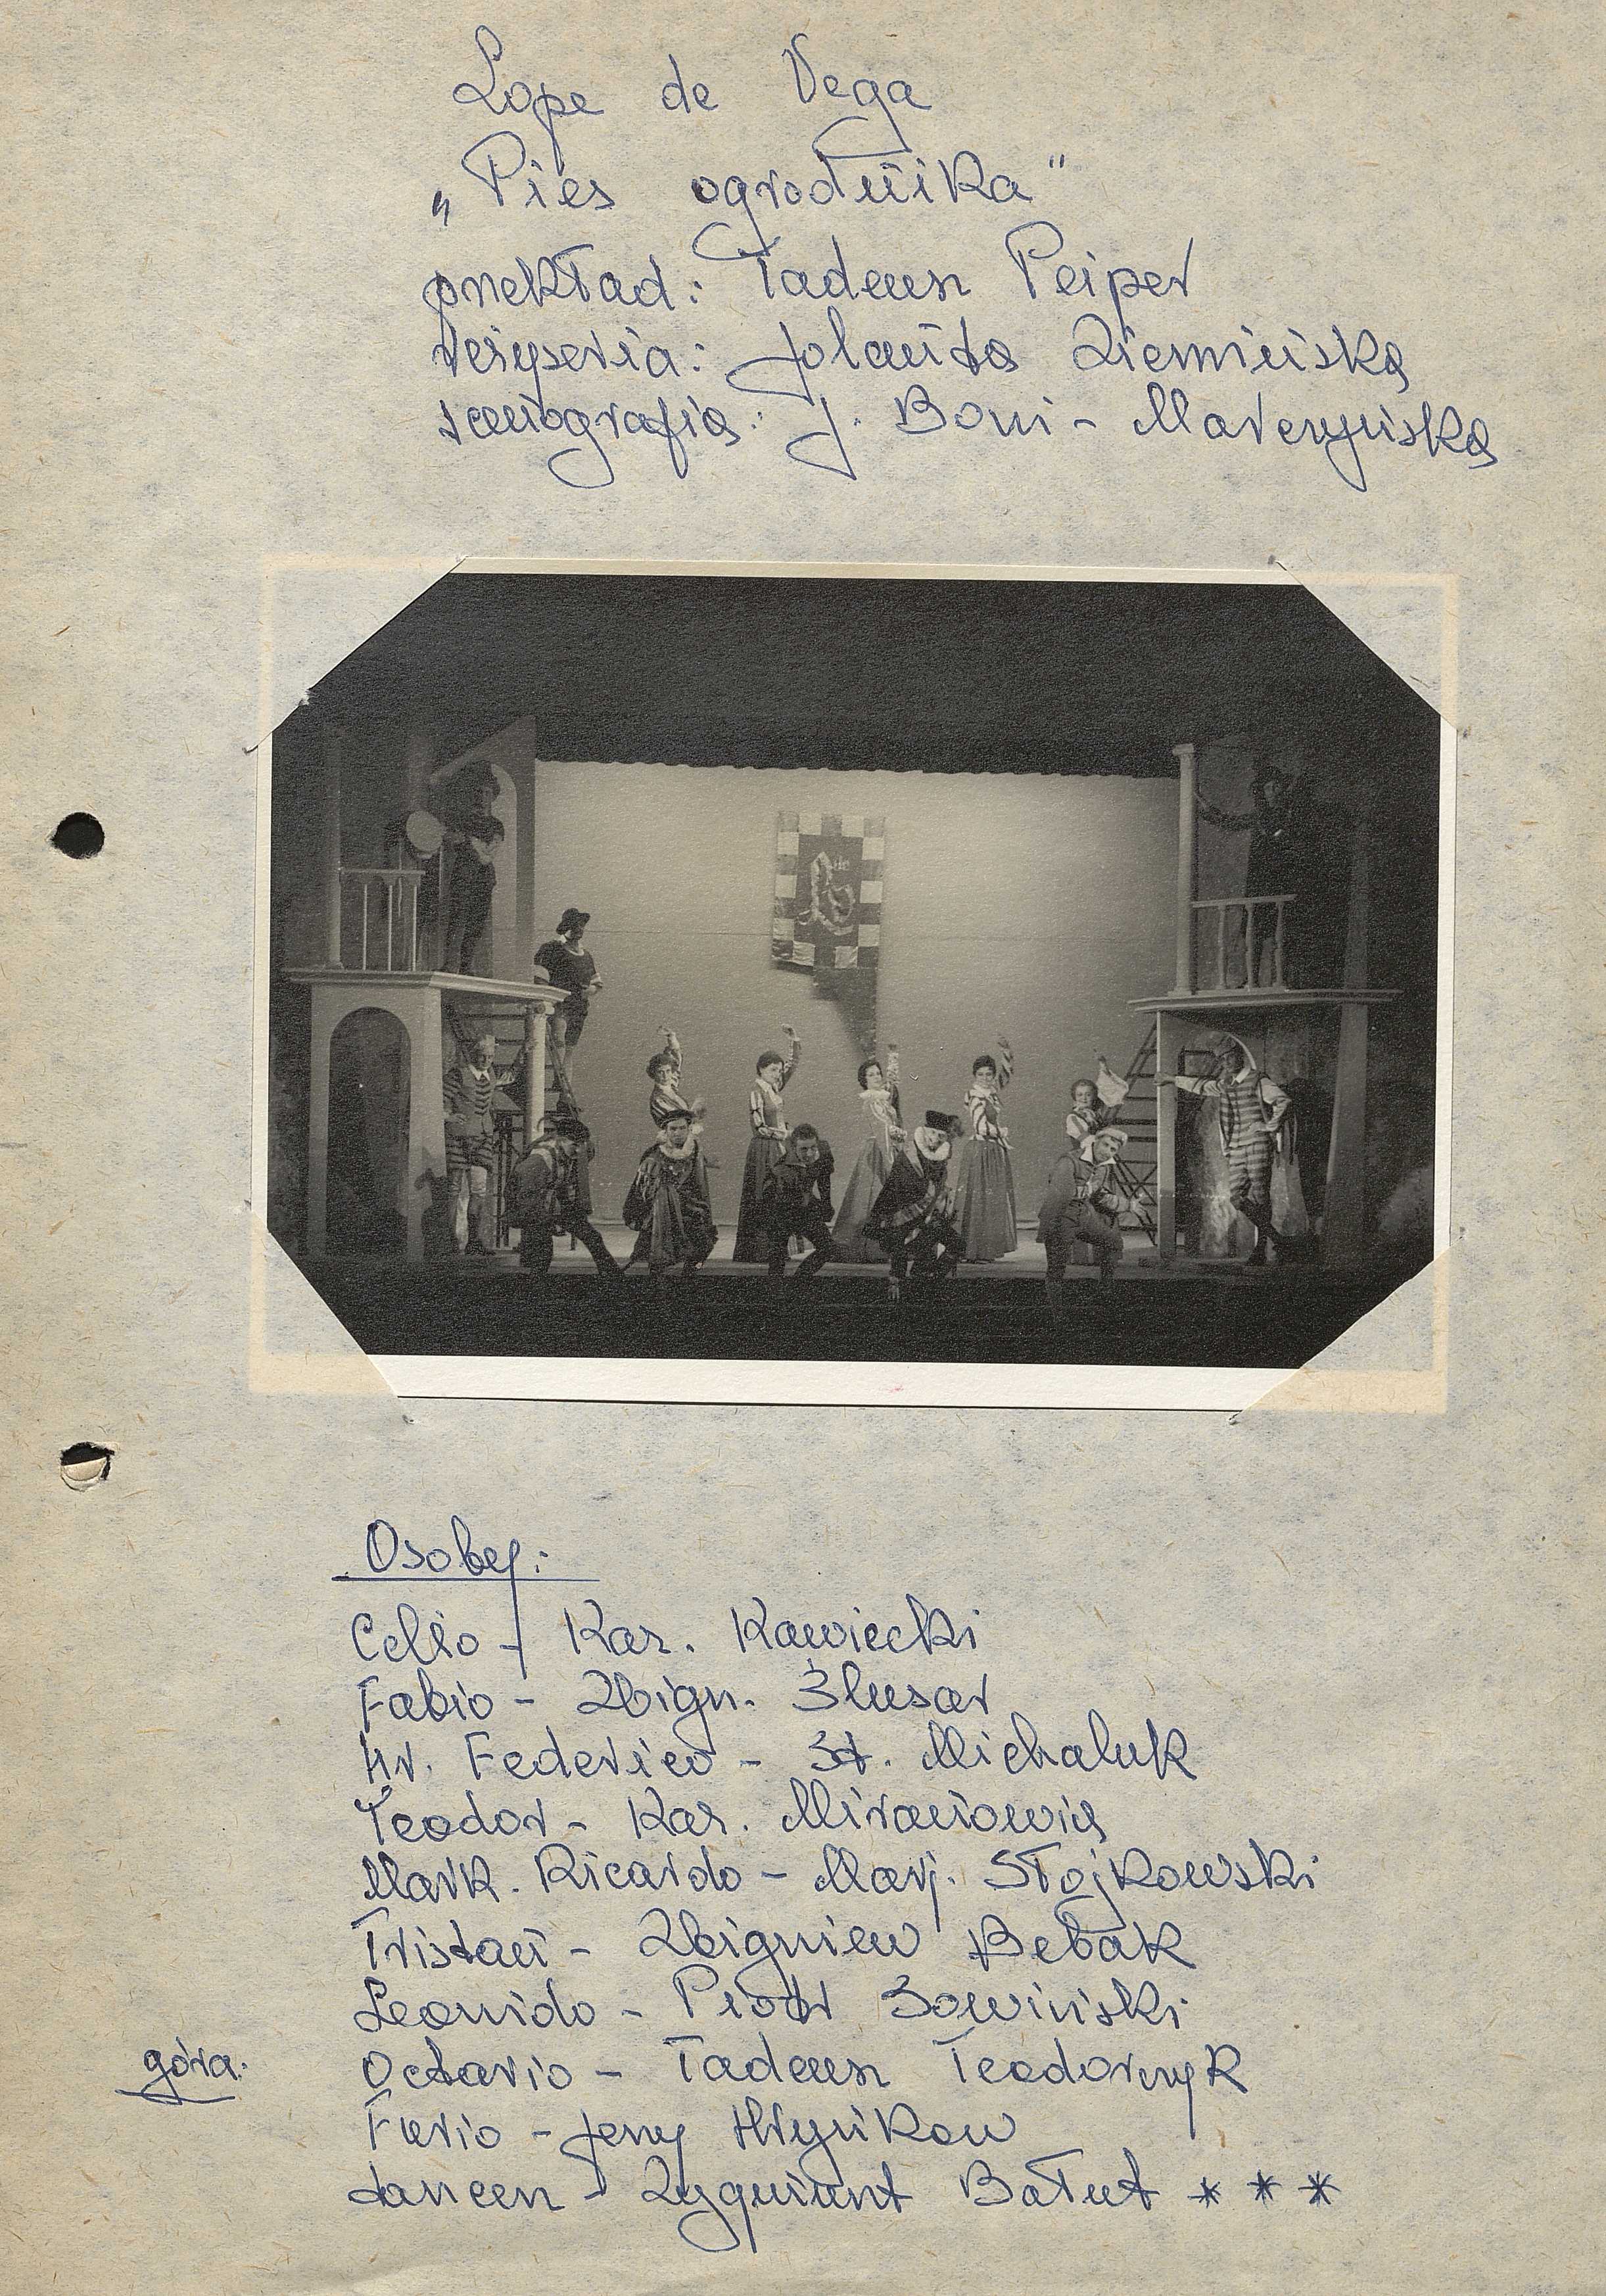 Lope de Vega
„Pies ogrodnika"
przekład: Tadeusz Peiper
reżyseria: Jolanta Ziemińska
scenografia: J. Boni-Marczyńska
Osoby:
Celio - Kaz. Kawiecki
Fabio - Zbign. Ślusar
Hr. Federico - St. Michaluk
Teodor - Kaz. Miranowicz
Mark. Ricardo - Marj. Stojkowski
Tristan - Zbigniew Bebak
Leonido - Piotr Sowiński
góra: Octavio - Tadeusz Teodorczyk
Furio - Jerzy Hryńkow
tancerz - Zygmunt Bałut * * *